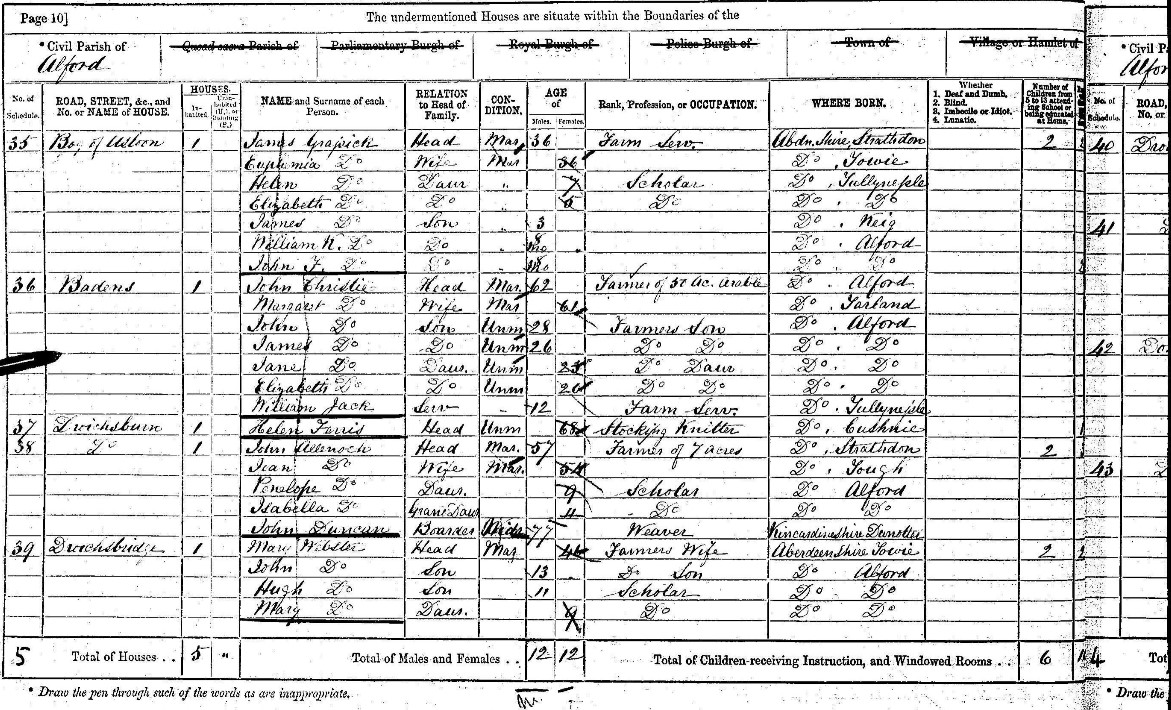 Page 10] The undermentioned Houses are situate within the Boundaries of the
* Civil Parish of Quoad sacra Parish of Parliamentary Burgh of Royal Burgh of Police Burgh of Town of Village or Hamlet of * Civil Pa
Alford Alfor
No. of Schedule. ROAD, STREET, &c., and No. or NAME of HOUSE. HOUSES. Inhabited. NAME and Surname of each Person. RELATION to Head of Family. CONDITION. AGE of Males. Females. Rank, Profession, or OCCUPATION. WHERE BORN. Whether 1. Deaf and Dumb. 2. Blind. 3. Imbecile or Idiot. 4. Lunatic. Number of Children from 5 to 13 attending School or being educated at Home. No. of Schedule. ROAD, No. or
35 1 James Head Mar 36 Farm Serv. Abdn. Shire, Strathdon 2 40
Euphemia Do Wife Mar 36 Do, Towie
Helen Do Daur 7 Scholar Do, Tullynessle
Elizabeth Do Do 5 Do Do. Do
James Do Son 3 Do. Keig 41
William Do Do 8 mo Do. Alford
John F. Do Do mo Do Do
36 Badens 1 John Christie Head Mar. 62 Farmer of 57 Ac. arable Do. Alford
Margaret Do Wife Mar 61 Do. Tarland
John Do Son Unm 28 Farmers Son Do. Alford
James Do Do Unm 26 Do Do Do. Do 42
Jane Do Daur. Unm Do Daur Do. Do
Elizabeth Do Do Unm 20 Do Do Do. Do
William Jack Serv 12 Farm Serv. Do. Tullynessle
37 Drichsburn 1 Helen Farris Head Unm 68 Stocking Knitter Do, Cushnie
38 Do 1 John Allenoch Head Mar. 57 Farmer of 7 acres Do, Strathdon 2
Jean Do Wife Mar. 54 Do. Tough 43
Penelope Do Daur. 9 Scholar Do Alford
Isabella Do Grand Daur 11 Do Do Do
John Duncan Boarder Widr 77 Weaver Kincardineshire Dunottar
39 Drichsbridge 1 Mary Webster Head Mar 46 Farmers Wife Aberdeenshire Towie 2
John Do Son 13 Do Son Do Alford
Hugh Do Son 11 Scholar Do Do
Mary Do Daur. 9 Do Do Do
5 Total of Houses . . 5 " Total of Males and Females . . 12 12 Total of Children receiving Instruction, and Windowed Rooms . . 6 4 Tot
* Draw the pen through such of the words as are inappropriate. * Draw the